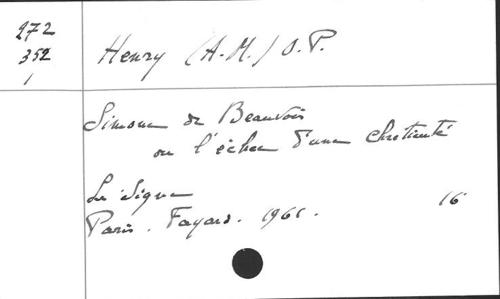 272
352
1
Henry (A-M.) O.P.
Simone de Beauvoir
ou l'échec d'une chrétienté
Le Signe 16
Paris. Fayard. 1961.